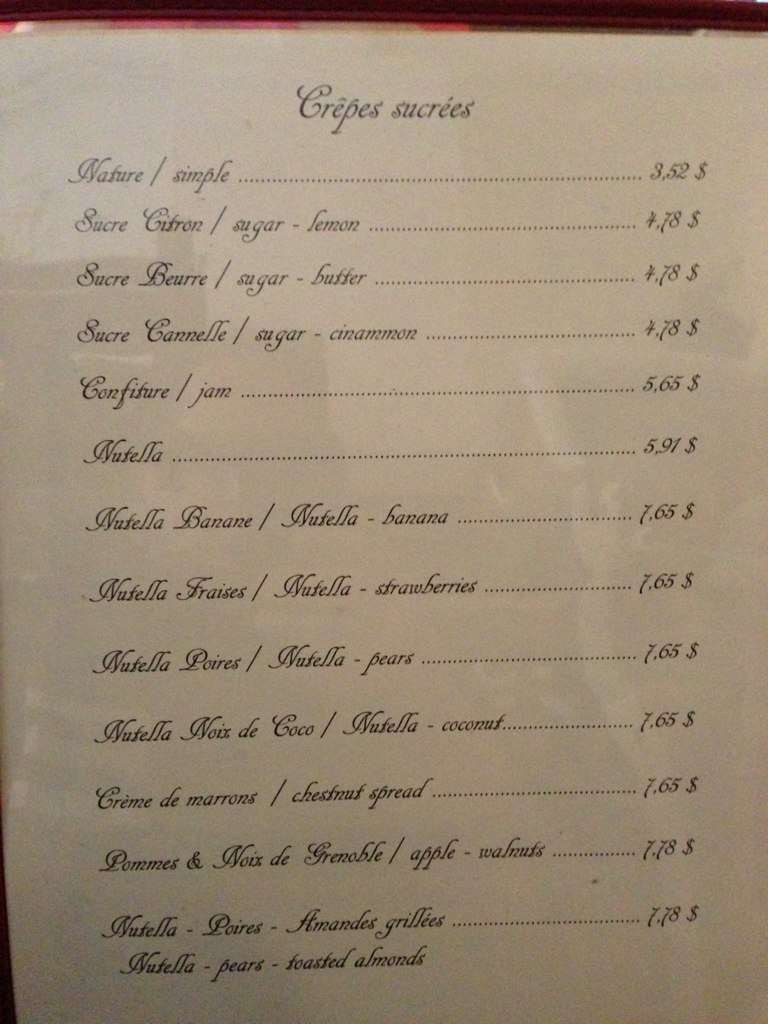 Crêpes sucrées
Nature / simple ........................................................................ 3,52 $
Sucre Citron / sugar - lemon ................................................ 4,78 $
Sucre Beurre / sugar - butter ............................................... 4,78 $
Sucre Cannelle / sugar - cinammon ...................................... 4,78 $
Confiture / jam ...................................................................... 5,65 $
Nutella .................................................................................. 5,91 $
Nutella Banane / Nutella - banana ................................ 7,65 $
Nutella Fraises / Nutella - strawberries ........................... 7,65 $
Nutella Poires / Nutella - pears ....................................... 7,65 $
Nutella Noix de Coco / Nutella - coconut........................ 7,65 $
Crème de marrons / chestnut spread ..................................... 7,65 $
Pommes & Noix de Grenoble / apple - walnuts ............... 7,78 $
Nutella - Poires - Amandes grillées .................................. 7,78 $
Nutella - pears - toasted almonds